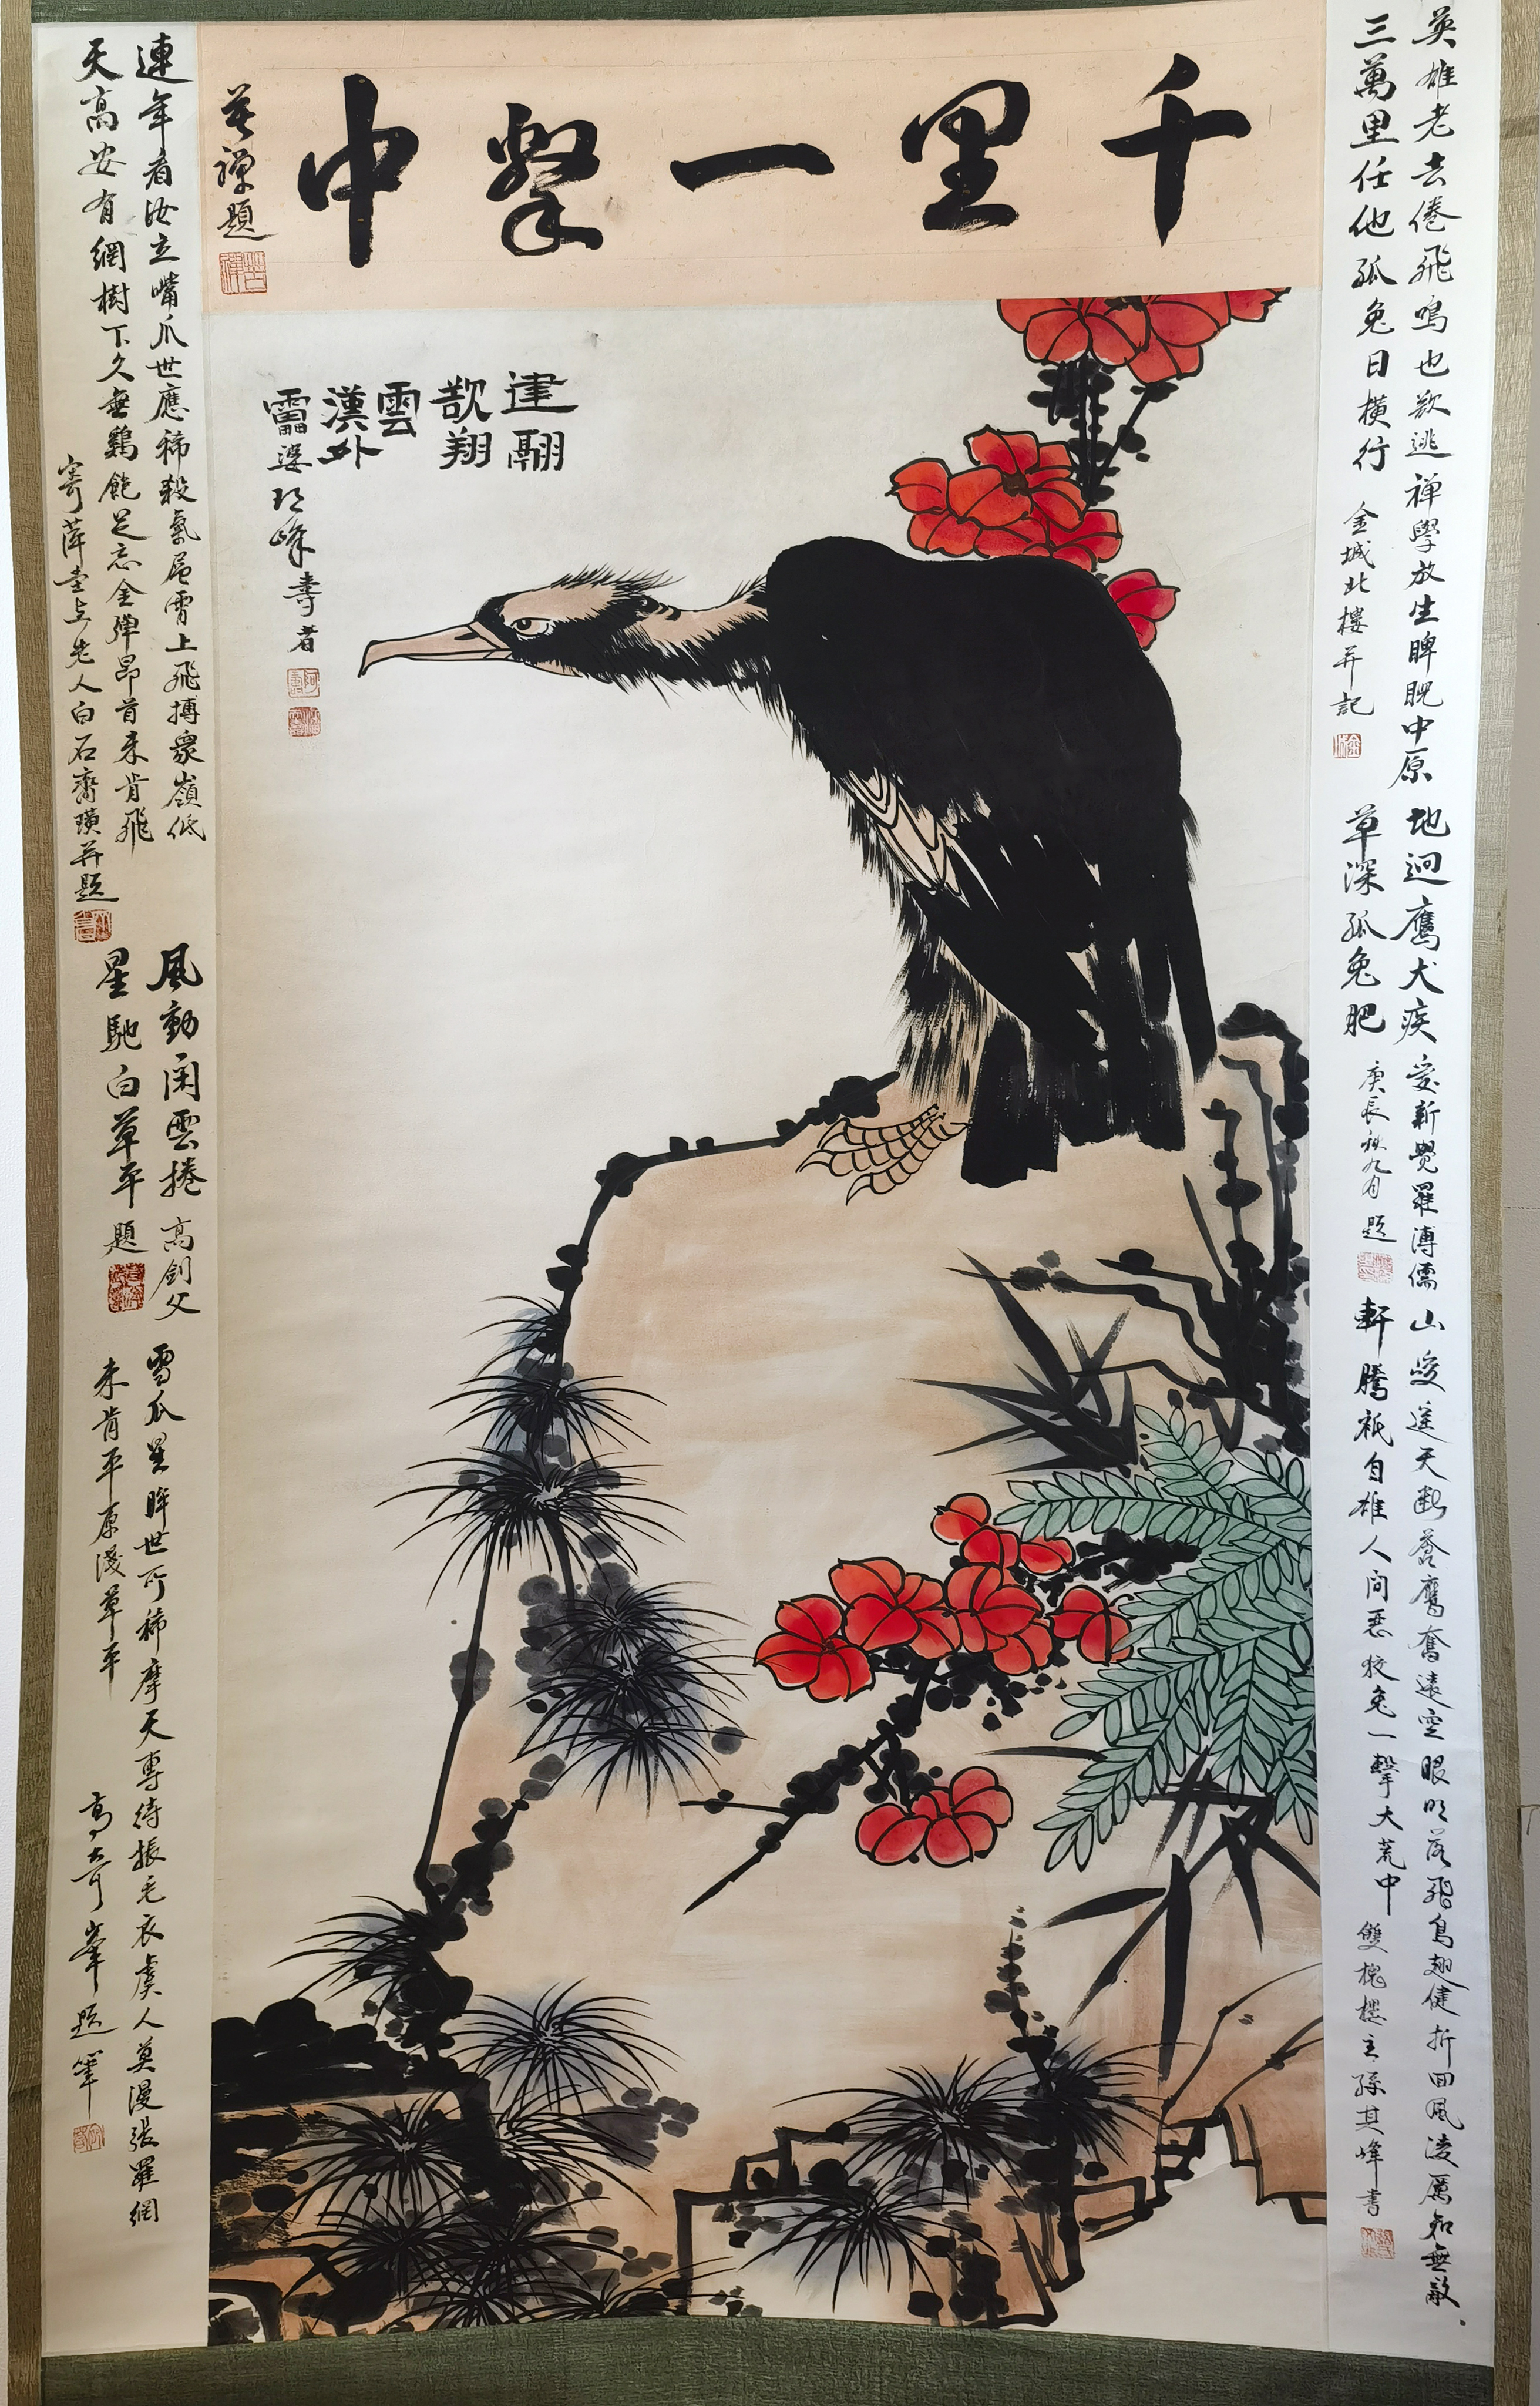 千里一擊中
苦禪題
建翮
歡翔
雲
漢外
雷婆
頂峰壽者
英雄老去倦飛鳴也欲逃禪學放生睥睨中原
三萬里任他狐兔日橫行
金城北樓并記
地迥鷹犬疾
草深狐兔肥
愛新覺羅溥儒
庚辰秋九月題
山學遙天斷蒼鷹奮遠空眼明落飛鳥翅健折回風淩厲知無敵
軒騰祇自雄人間惡狡兔一擊大荒中
雙槐樓主孫其峰書
連年看汝立嘴爪世應稀殺氣層霄上飛搏眾嶺低
天高安有網樹下久無雞飽足忘金彈昂首未肯飛
寄萍堂上老人白石齊璜并題
風動閑雲捲
星馳白草平
高劍父
題
雪爪星眸世所稀摩天專待振毛衣虞人莫漫張羅網
未肯平原淺草平
高奇峯題筆